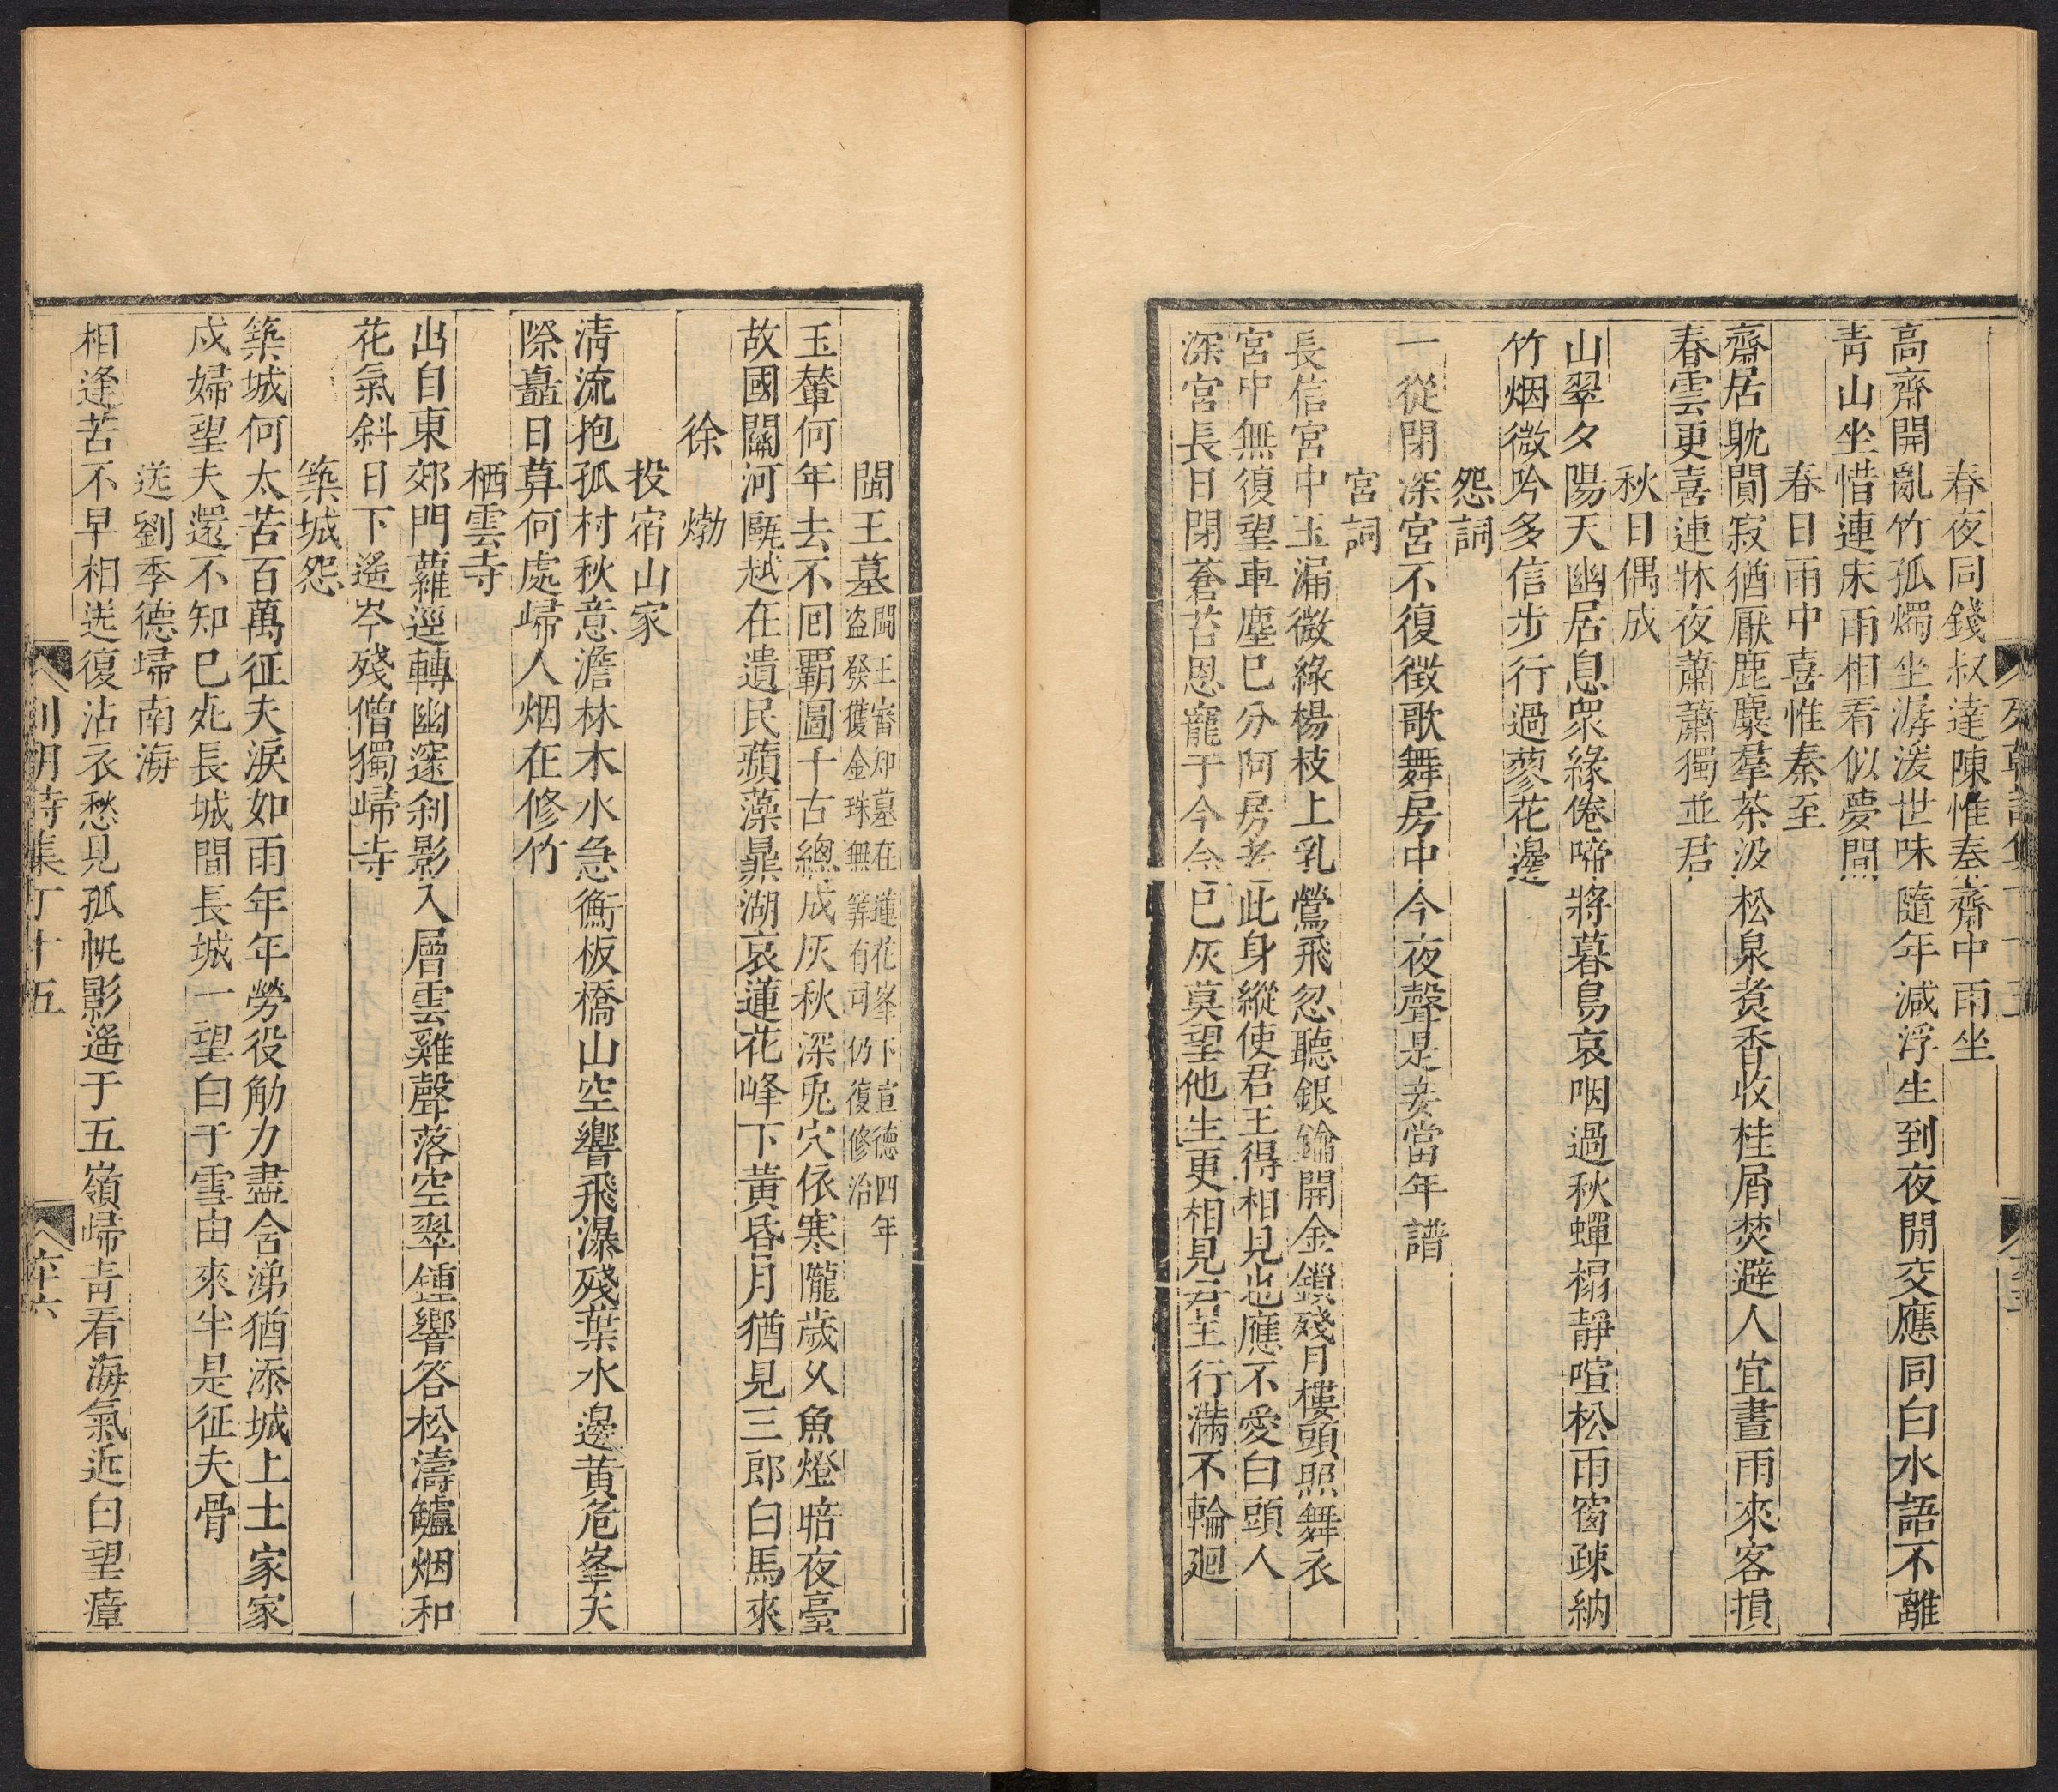 春夜同錢叔達陳惟秦齋中雨坐
高齋開亂竹孤燭坐潺湲世味隨年減浮生到夜閒交應同白水語不離
青山坐惜連床雨相看似夢間
春日雨中喜惟秦至
齋居耽閴寂猶厭鹿麋羣茶汲松泉煑香收桂屑焚避人宜晝雨來客損
春雲更喜連牀夜蕭蕭獨並君
秋日偶成
山翠夕陽天幽居息衆緣倦啼將暮鳥哀咽過秋蟬榻靜喧松雨窗疎納
竹烟微吟多信步行過蓼花邊
怨詞
一從閉深宮不復徵歌舞房中今夜聲是妾當年譜
宮詞
長信宮中玉漏微綠楊枝上乳鶯飛忽聽銀鑰開金鎖殘月樓頭照舞衣
宮中無復望車塵已分阿房老此身縱使君王得相見也應不愛白頭人
深宮長日閉蒼苔恩寵于今今已灰莫望他生更相見君王行滿不輪廻
閩王墓閩王審知墓在蓮花峯下宣德四年
盜發獲金珠無筭有司仍復修治
玉輦何年去不回覇圖千古總成灰秋深兎穴依寒隴歲久魚燈暗夜臺
故國關河甌越在遺民蘋藻鼎湖哀蓮花峰下黄昏月猶見三郎白馬來
徐𤊹
投宿山家
清流抱孤村秋意澹林木水急衝板橋山空響飛瀑殘葉水邊黄危峯天
際矗日算何處歸人烟在修竹
栖雲寺
出自東郊門蘿逕轉幽邃刹影入層雲雞聲落空翠鍾響答松濤鑪烟和
花氣斜日下遙岑殘僧獨歸寺
築城怨
築城何太苦百萬征夫淚如雨年年勞役觔力盡含涕猶添城上土家家
戍婦望夫還不知已死長城間長城一望白于雪由來半是征夫骨
送劉季德歸南海
相逢苦不早相送復沾衣愁見孤帆影遙于五嶺歸青看海氣近白望瘴
列朝詩集丁十五